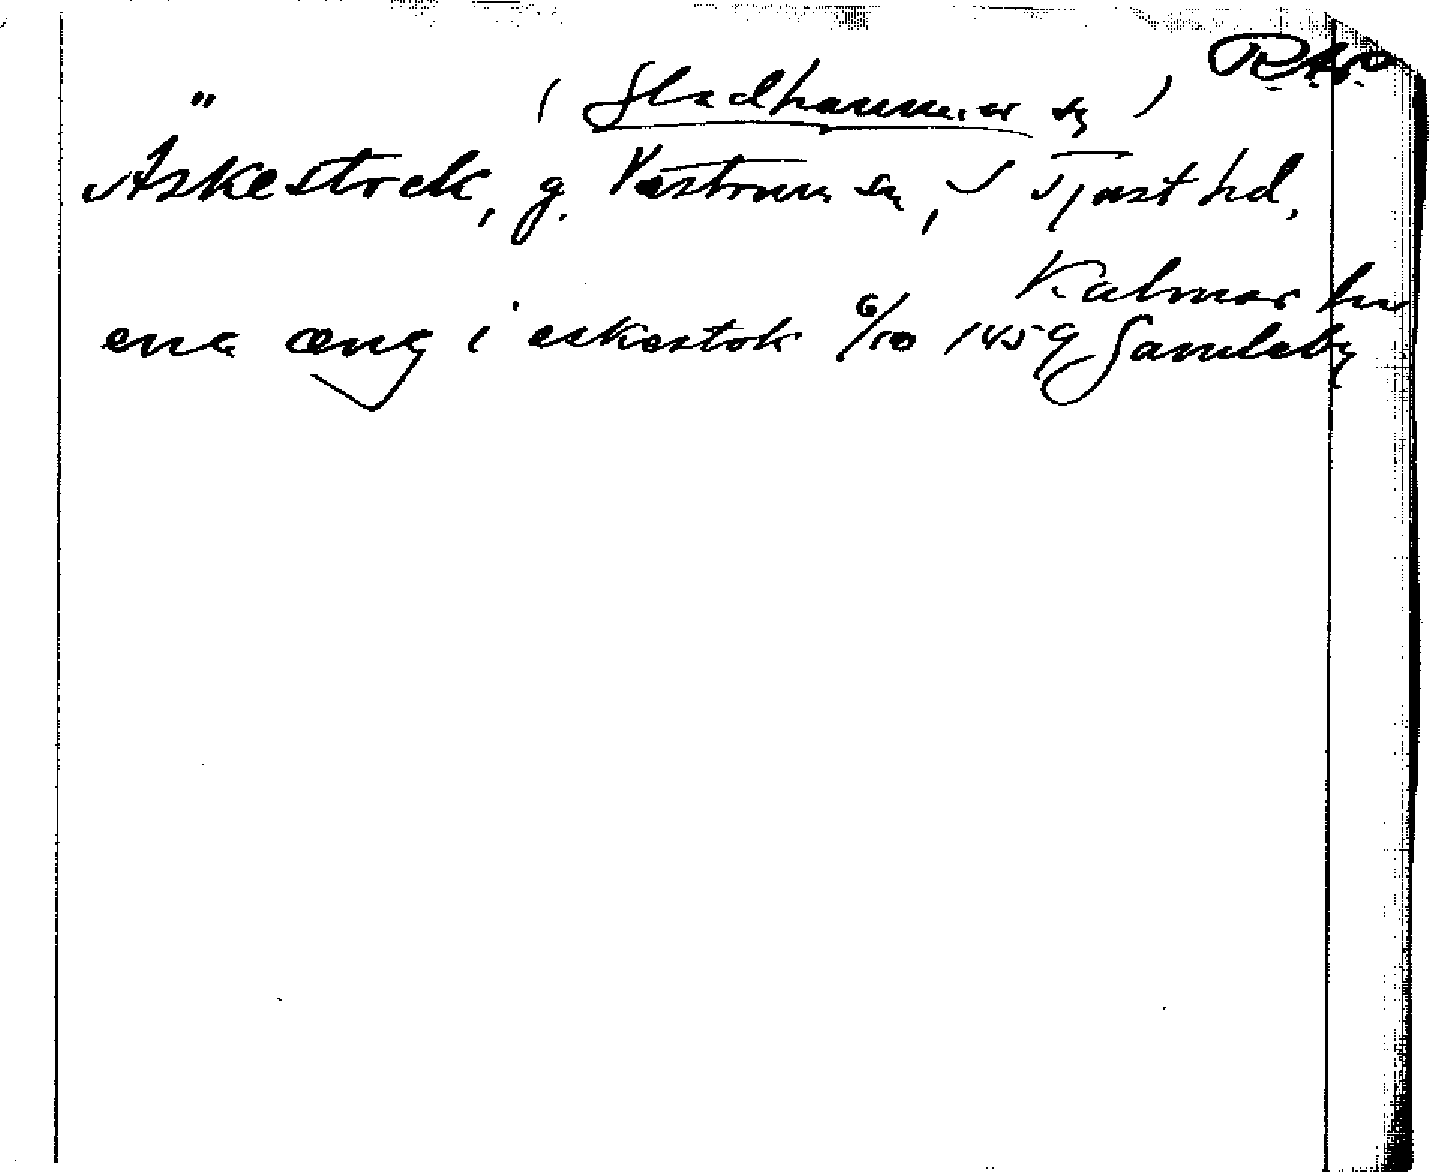 RAp
" ( Gladhammar sn )
Askestock, g. Västrum sn, S Tjust hd,
Kalmar län
ena æng i eskestok 6/10 1459 Gamleby